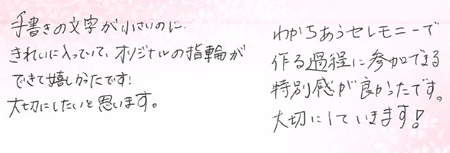 手書きの文字が小さいのに、
きれいに入っていて、オリジナルの指輪が
できて嬉しかったです!
大切にしたいと思います。
わかちあうセレモニーで
作る過程に参加できる
特別感が良かったです。
大切にしていきます!